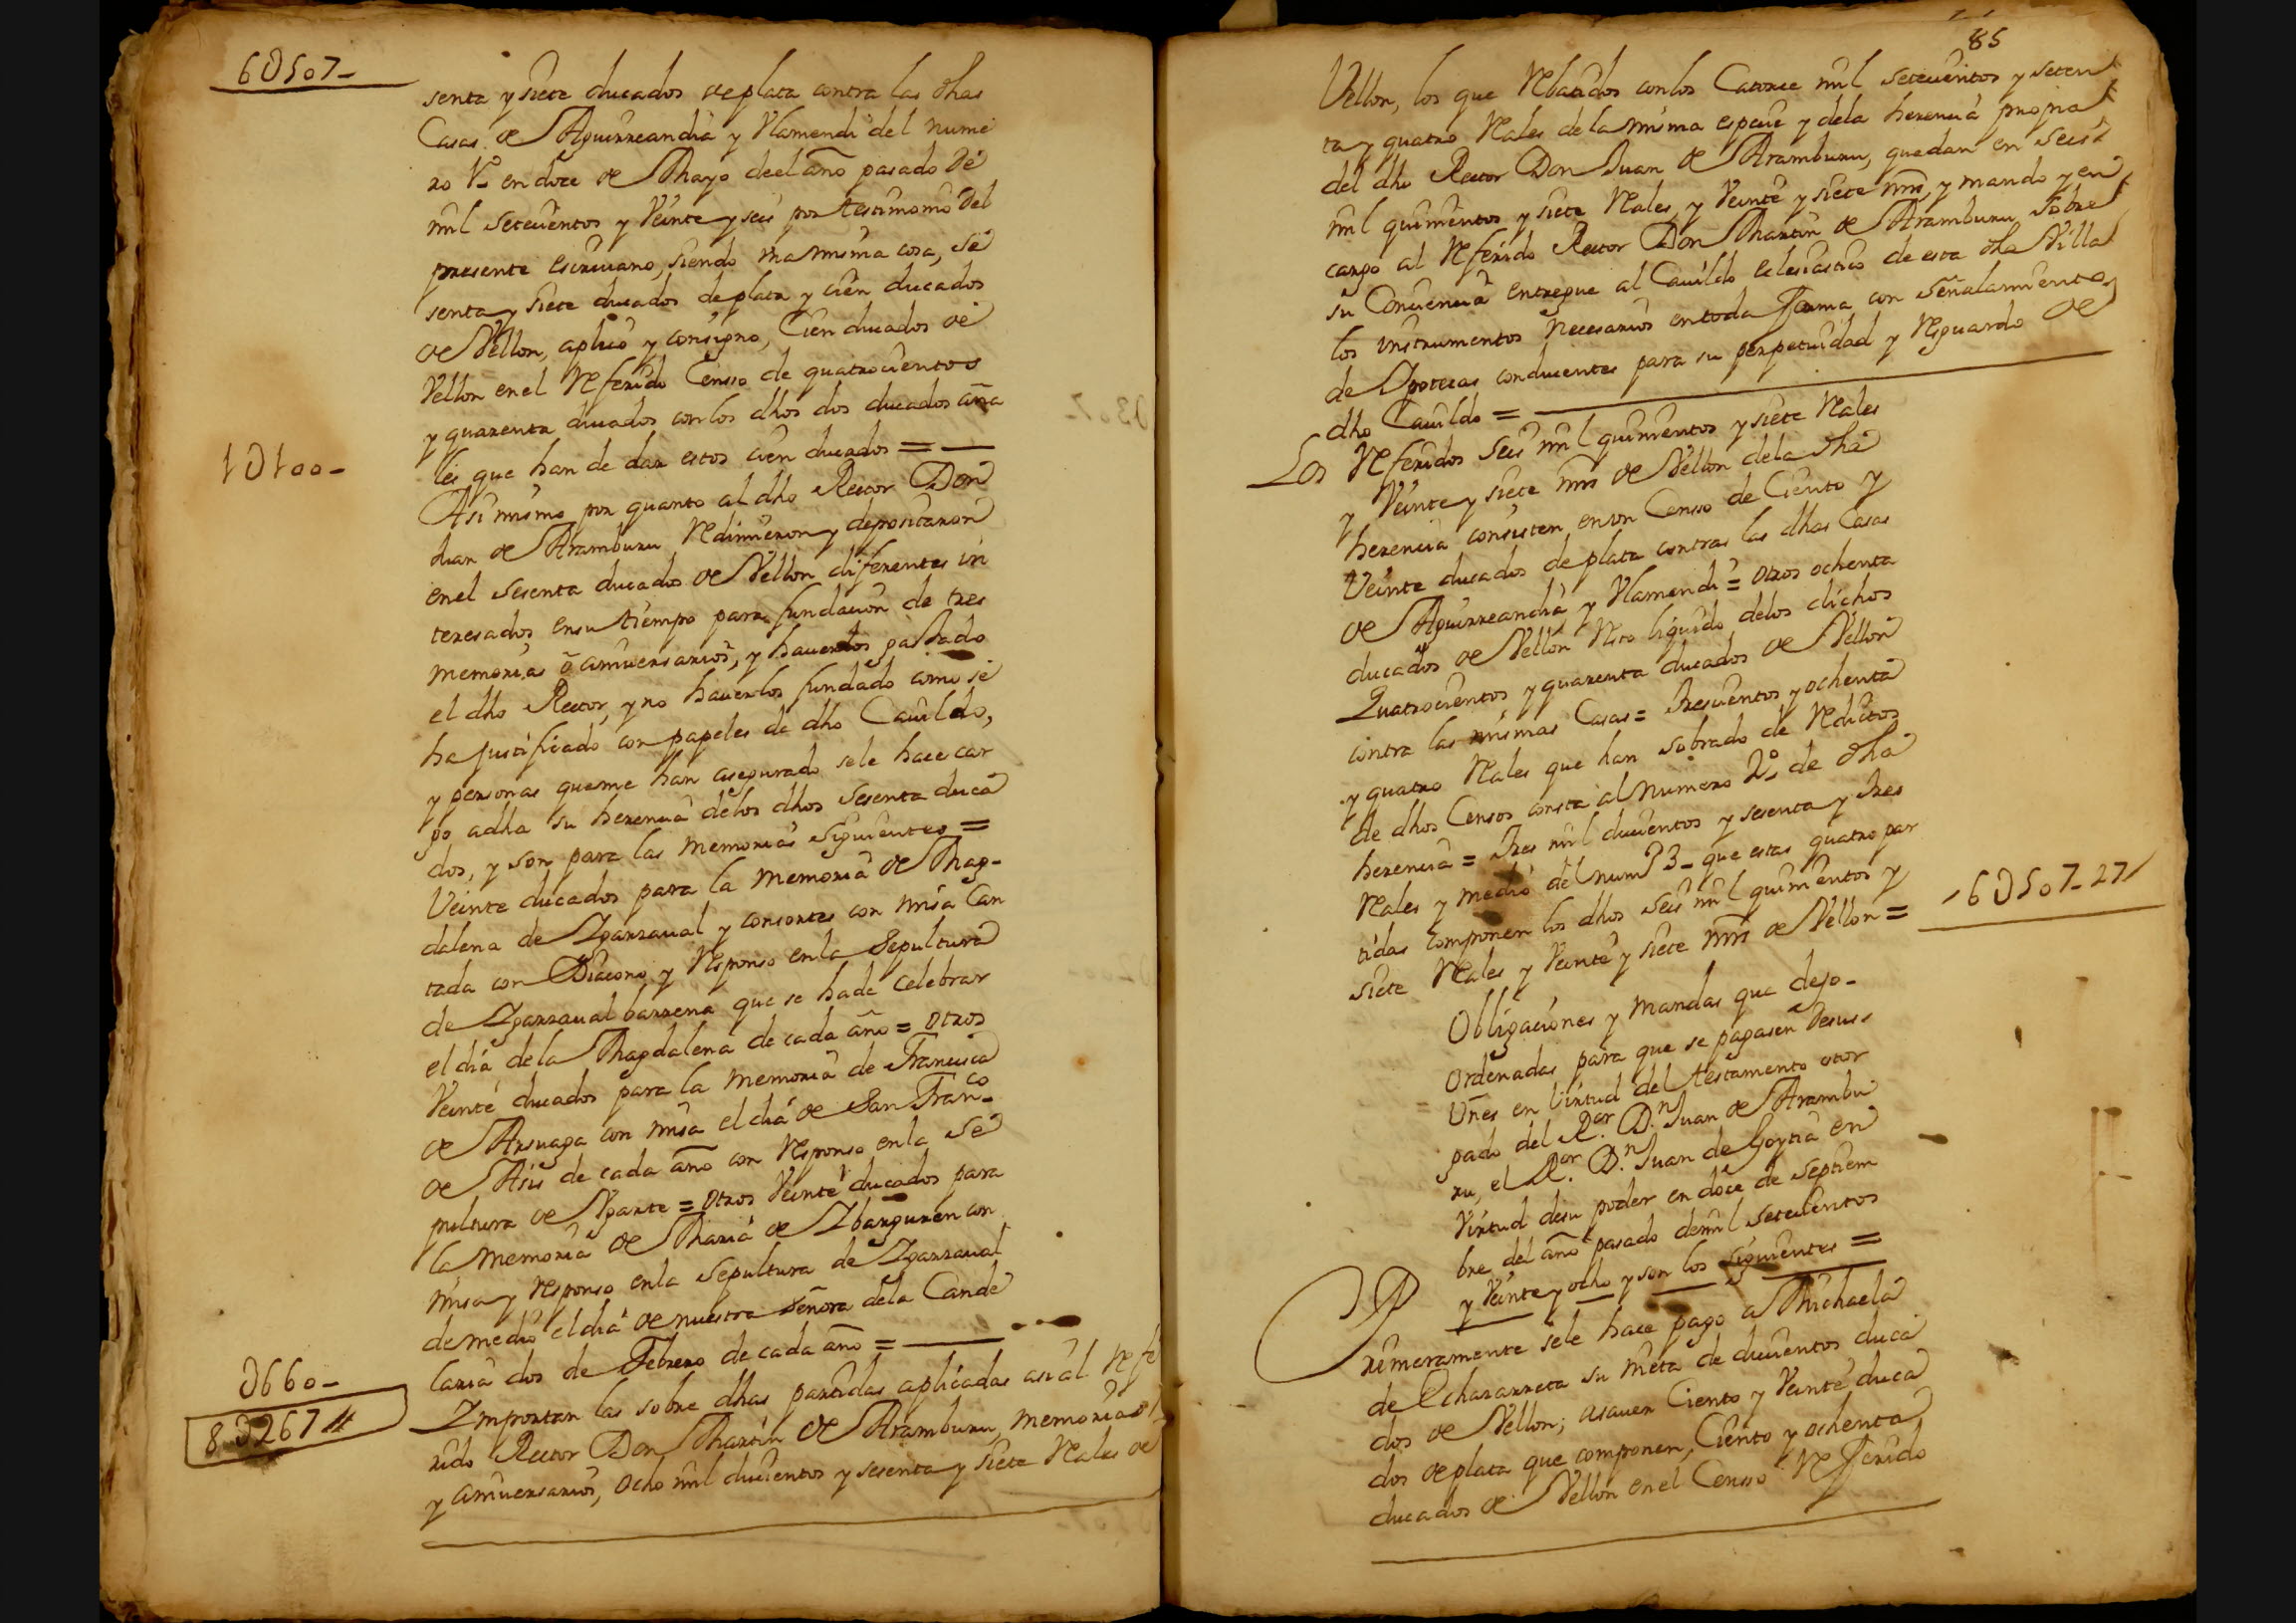 6U507-
senta y siete ducados de plata contra las dhas
Casas de Aguirreandia y Vlamendi del nume
ro 1º en doce de Mayo de el año pasado de
mil setecientos y Veinte y seis por testimonio del
presente escrivano, siendo una misma cosa, se
senta y siete ducados de plata y cien ducados
de Vellon, aplico y consigno, Cien ducados de
Vellon en el Referido Censso de quatrocientos
y quarenta ducados con los dhos dos ducados aña
les que han de dar estos cien ducados =
1U100-
Asi mismo por quanto al dho Rector Don
Juan de Aramburu Redimieron y depositaron
en el sesenta ducados de Vellon diferentes in
teresados en su tiempo para fundacion de tres
memorias ô aniversarios, y haverlos gastado
el dho Rector, y no haverlos fundado como se
ha justificado con papeles de dho Cavildo,
y personas que me han asegurado se le hace car
go a dha su herencia de los dhos sesenta duca
dos, y son para las memorias siguientes =
Veinte ducados para la memoria de Mag-
dalena de Ygarzaval y consortes con misa Can
tada con Diacono y Responso en la Sepultura
de Ygarzaval barrena que se ha de Celebrar
el dia de la Magdalena de cada año = otros
Veinte ducados para la memoria de Francisca
de Arsuaga con misa el dia de San Franco
de Asis de cada año con Responso en la Se
pultura de Ugarte = otros Veinte ducados para
la memoria de Maria de Ybarguren con
misa y responso en la Sepultura de Ygarzaval
de medio el dia de nuestra Señora de la Cande
laria dos de Febrero de cada año =
U660-
8U267
Importan las sobre dhas partidas aplicadas asi al Refe
rido Rector Don Martin de Aramburu, memorias
y aniversarios, ocho mil ducientos y sesenta y siete Reales de
85
Vellon, los que Rebatidos con los Catorce mil setecientos y seten
ta y quatro Reales de la misma especie y de la herencia propia
del dho Rector Don Juan de Aramburu, quedan en Seis
mil quinientos y siete Reales, y Veinte y siete mrs, y mando y en
cargo al Referido Rector Don Martin de Aramburu sobre
su Conciencia entregue al Cavildo eclesiastico de esta dha Villa
los instrumentos Necesarios en toda forma con señalamiento
de Ypotecas conducentes para su perpetuidad y Resguardo de
dho Cavildo =
Los Referidos Seis mil quinientos y siete Reales
y Veinte y siete mrs de Vellon de la dha
herencia consisten en un Censso de Ciento y
Veinte ducados de plata contras las dhas Casas
de Aguirreandia y Vlamendi = otros ochenta
ducados de Vellon Neto liquido de los dichos
Quatrocientos y quarenta ducados de Vellon
contra las mismas Casas = Trescientos y ochenta
y quatro Reales que han sobrado de Reditos
de dhos Censos consta al numero 2º de dha
herencia = Tres mil ducientos y sesenta y tres
Reales y medio del num 3- que estas quatro par
tidas componen los dhos Seis mil quinientos y
siete Reales y Veinte y siete mrs de Vellon =
6U507-27
Obligaciones y Mandas que dejo-
Ordenadas para que se pagasen de sus
Vnes en Virtud del testamento otor
gado del Ror. Dn Juan de Arambu
ru, el Ror. Dn Juan de Goytia en
Virtud de su poder en doce de Septiem
bre del año pasado de mil setecientos
y Veinte y ocho y son los siguientes =
Primeramente se le hace pago a Michaela
de Echazarreta su nieta de ducientos duca
dos de Vellon; asaver Ciento y Veinte duca
dos de plata que componen, Ciento y ochenta
ducados de Vellon en el Censso Referido